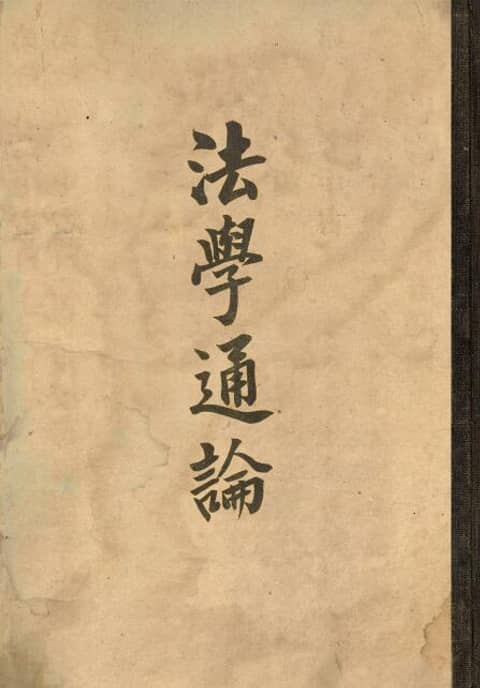 法學通論